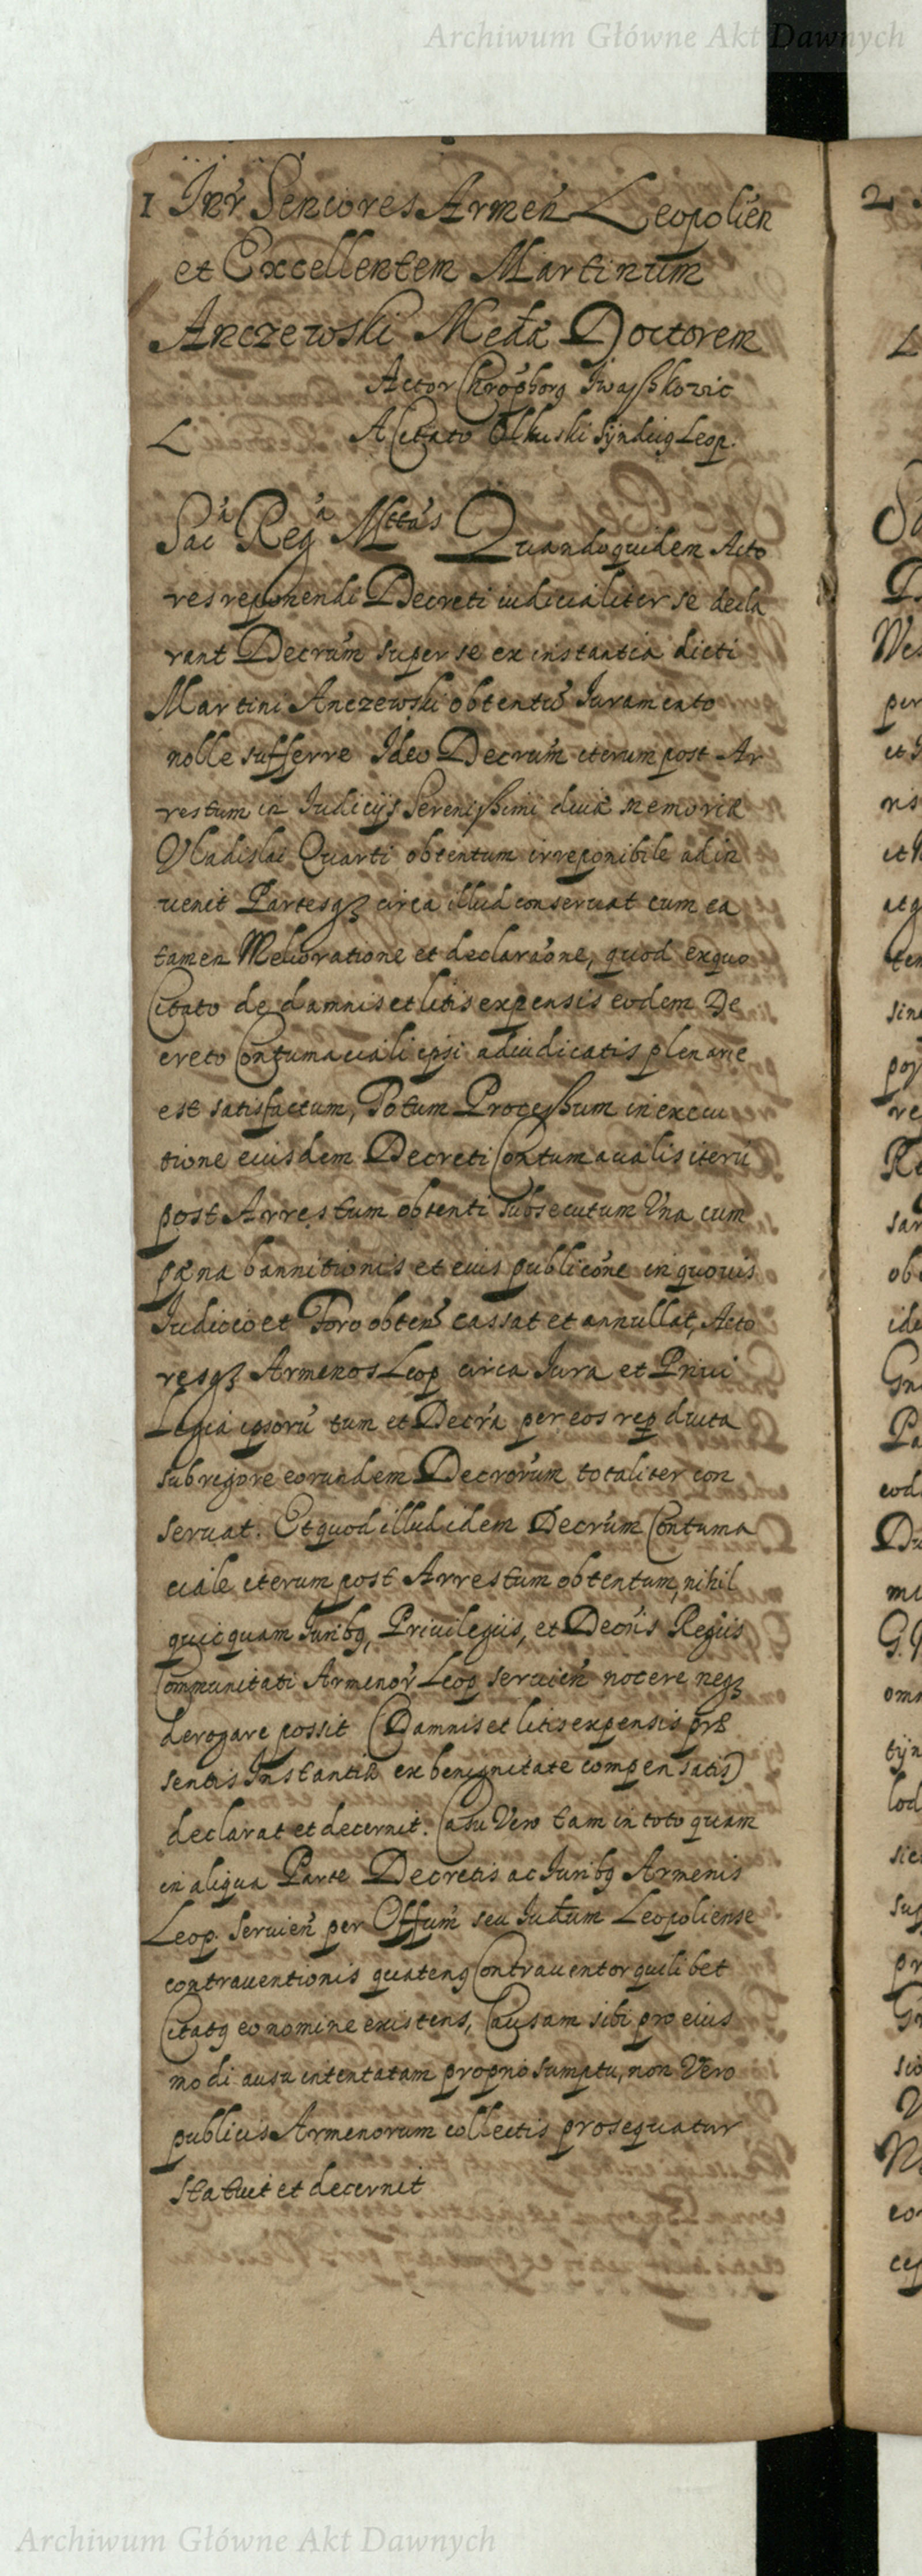 Archiwum Główne Akt Dawnych
1 Inr Seniores Armen Leopolien
et Excellentem Martinum
Anczewski Medæ Doctorem
Actor Chrophorg Iwaszkowic
L A Citato Olkuski Syndicg Leop.
Sac^a Reg^a M^ttas Quandoquidem Acto
res reponendi Decreti iudicialiter se decla
rant Decrum super se ex instantia dicti
Martini Anczewski obtento Iuramento
nolle sufferre Ideo Decrum iterum post Ar
restum in Iudicijs Serenissimi diuæ memoriæ
Vladislai Quarti obtentum irreponibile adin
uenit Partesqz circa illud conseruat cum ea
tamen Melioratione et declaraone, quod exquo
Citato de damnis et litis expensis eodem De
creto Contumaciali ipsi adiudicatis plenarie
est satisfactum, Totum Processum in execu
tione eiusdem Decreti Contumacialis iteru
post Arrestum obtenti subsecutum Vna cum
pæna bannitionis et eius publicone in quouis
Iudicio et Foro obten cassat et annullat, Acto
resqz Armenos Leop circa Iura et Priui
Legia ipsoru tum et Decra per eos rep ducta
sub rigore eorundem Decrorum totaliter con
seruat. Et quod illud idem Decrum Contuma
ciale iterum post Arrestum obtentum, nihil
quicquam Iuribg, Priuilegiis, et Decris Regiis
Communitati Armenor Leop seruien nocere neqz
derogare possit (Damnis et litis expensis præ
sentis Instantiæ ex benignitate compensatis)
declarat et decernit. Casu Vero tam in toto quam
in aliqua Parte Decretis ac Iuribg Armenis
Leop. Seruien per Offum seu Iudum Leopoliense
contrauentionis quateng Contrauentor quilibet
Citatg eo nomine existens, Causam sibi pro eius
modi ausu intentatam proprio sumptu, non Vero
publicis Armenorum collectis prosequatur
statuit et decernit
2
Archiwum Główne Akt Dawnych